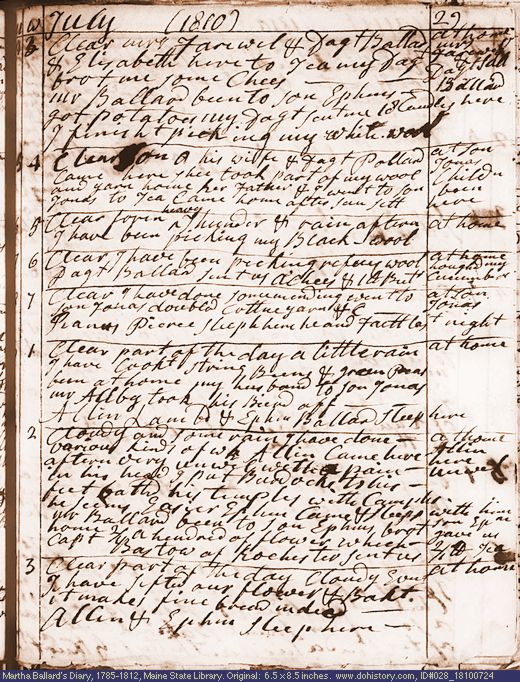 July (1810) 29
3 Clear mrs Farewel & Dagt Ballard at home
& Elizabeth here to Tea my Dagt mrs Farewel
brot me some Chees — Dagt Ball
mr Ballard been to Son Ephms — Ballard
got Potatoes my Dagt sent me 18 Candles here
I finisht picking my white wool
4 Clear Son & his wife & Dagt Pollard at Son
Came here shee took part of my wool Jonas
and yarn home her Father & I went to Son been
Jonas to Tea Came home after sun sett here
5 Clear foren heavy thunder & rain aftern at home
I have been picking my Black wool
6 Clear I have been picking refuse wool at home
Dagt Ballard sent us a Chees & lb But Cucumbers
7 Clear I have done some mending went to at Son
Son Jonas doubled Cotten yarn &C — Jonas
Pierce sleep here he and last night
1 Clear part of the day a little rain at home
I have Cookt String Beens & green Peas
been at home my husband to Son Jonas
mr took his Bierd off
Allin Lambd & Ephm Ballard sleep here
2 Cloudy and some rain I have done — at home
various kinds of wk Allin Came here Allin
aftern very unwel with a pain — here
in his head I put Burdock to his — unwel
feet bath'd his temples with Camphr
he seems Easier Ephm Came & sleeps with him
mr Ballard been to Son Ephms brot Son Ephm
home ½ a hundred of flower which gave us
Capt Bastow of Rochester sent us Tea
3 Clear part of the day Cloudy Evng at home
I have sifted our flower & Bakt
it makes fine bread indeed
Allin & Ephm sleep here —
Martha Ballard's Diary, 1785-1812, Maine State Library. Original: 6.5 x 8.5 inches. www.dohistory.com, ID#028_18100724